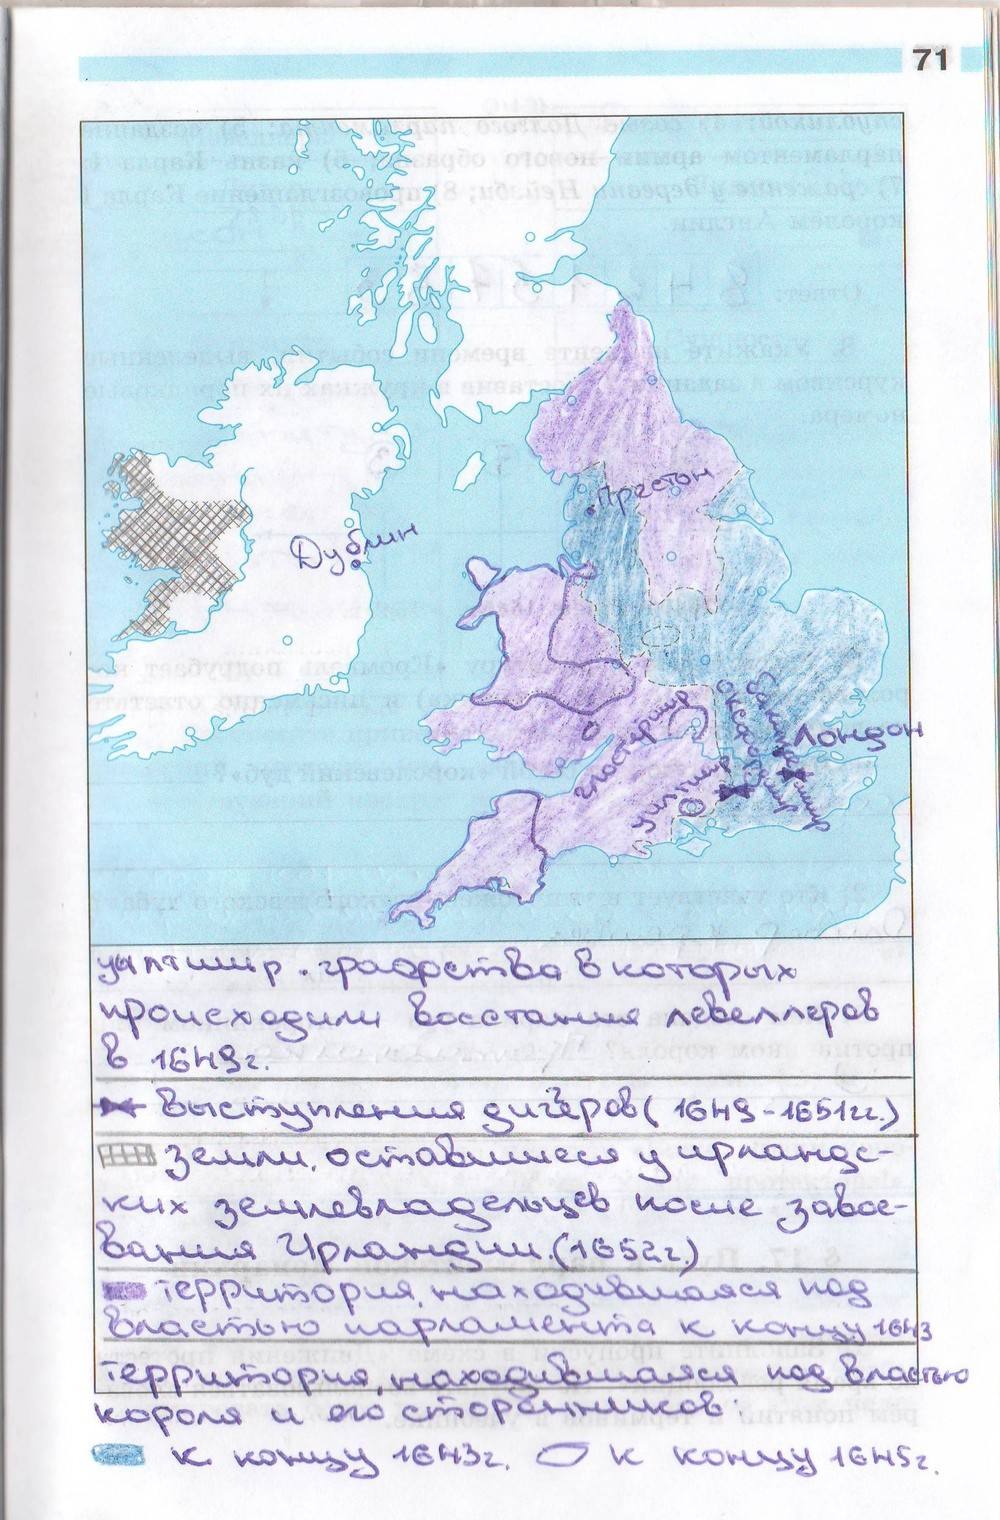 71
Престон
Дублин
Лондон
Оксфордшир
Глостершир
Уилтшир
Уилтшир. графства в которых
происходили восстания левеллеров
в 1649г.
выступления диггеров (1649-1651гг.)
Земли, оставшиеся у ирландс-
ких землевладельцев после завое-
вания Ирландии. (1652г.)
территория, находившаяся под
властью парламента к концу 1643
территория, находившаяся под властью
короля и его сторонников:
к концу 1643г. к концу 1645г.